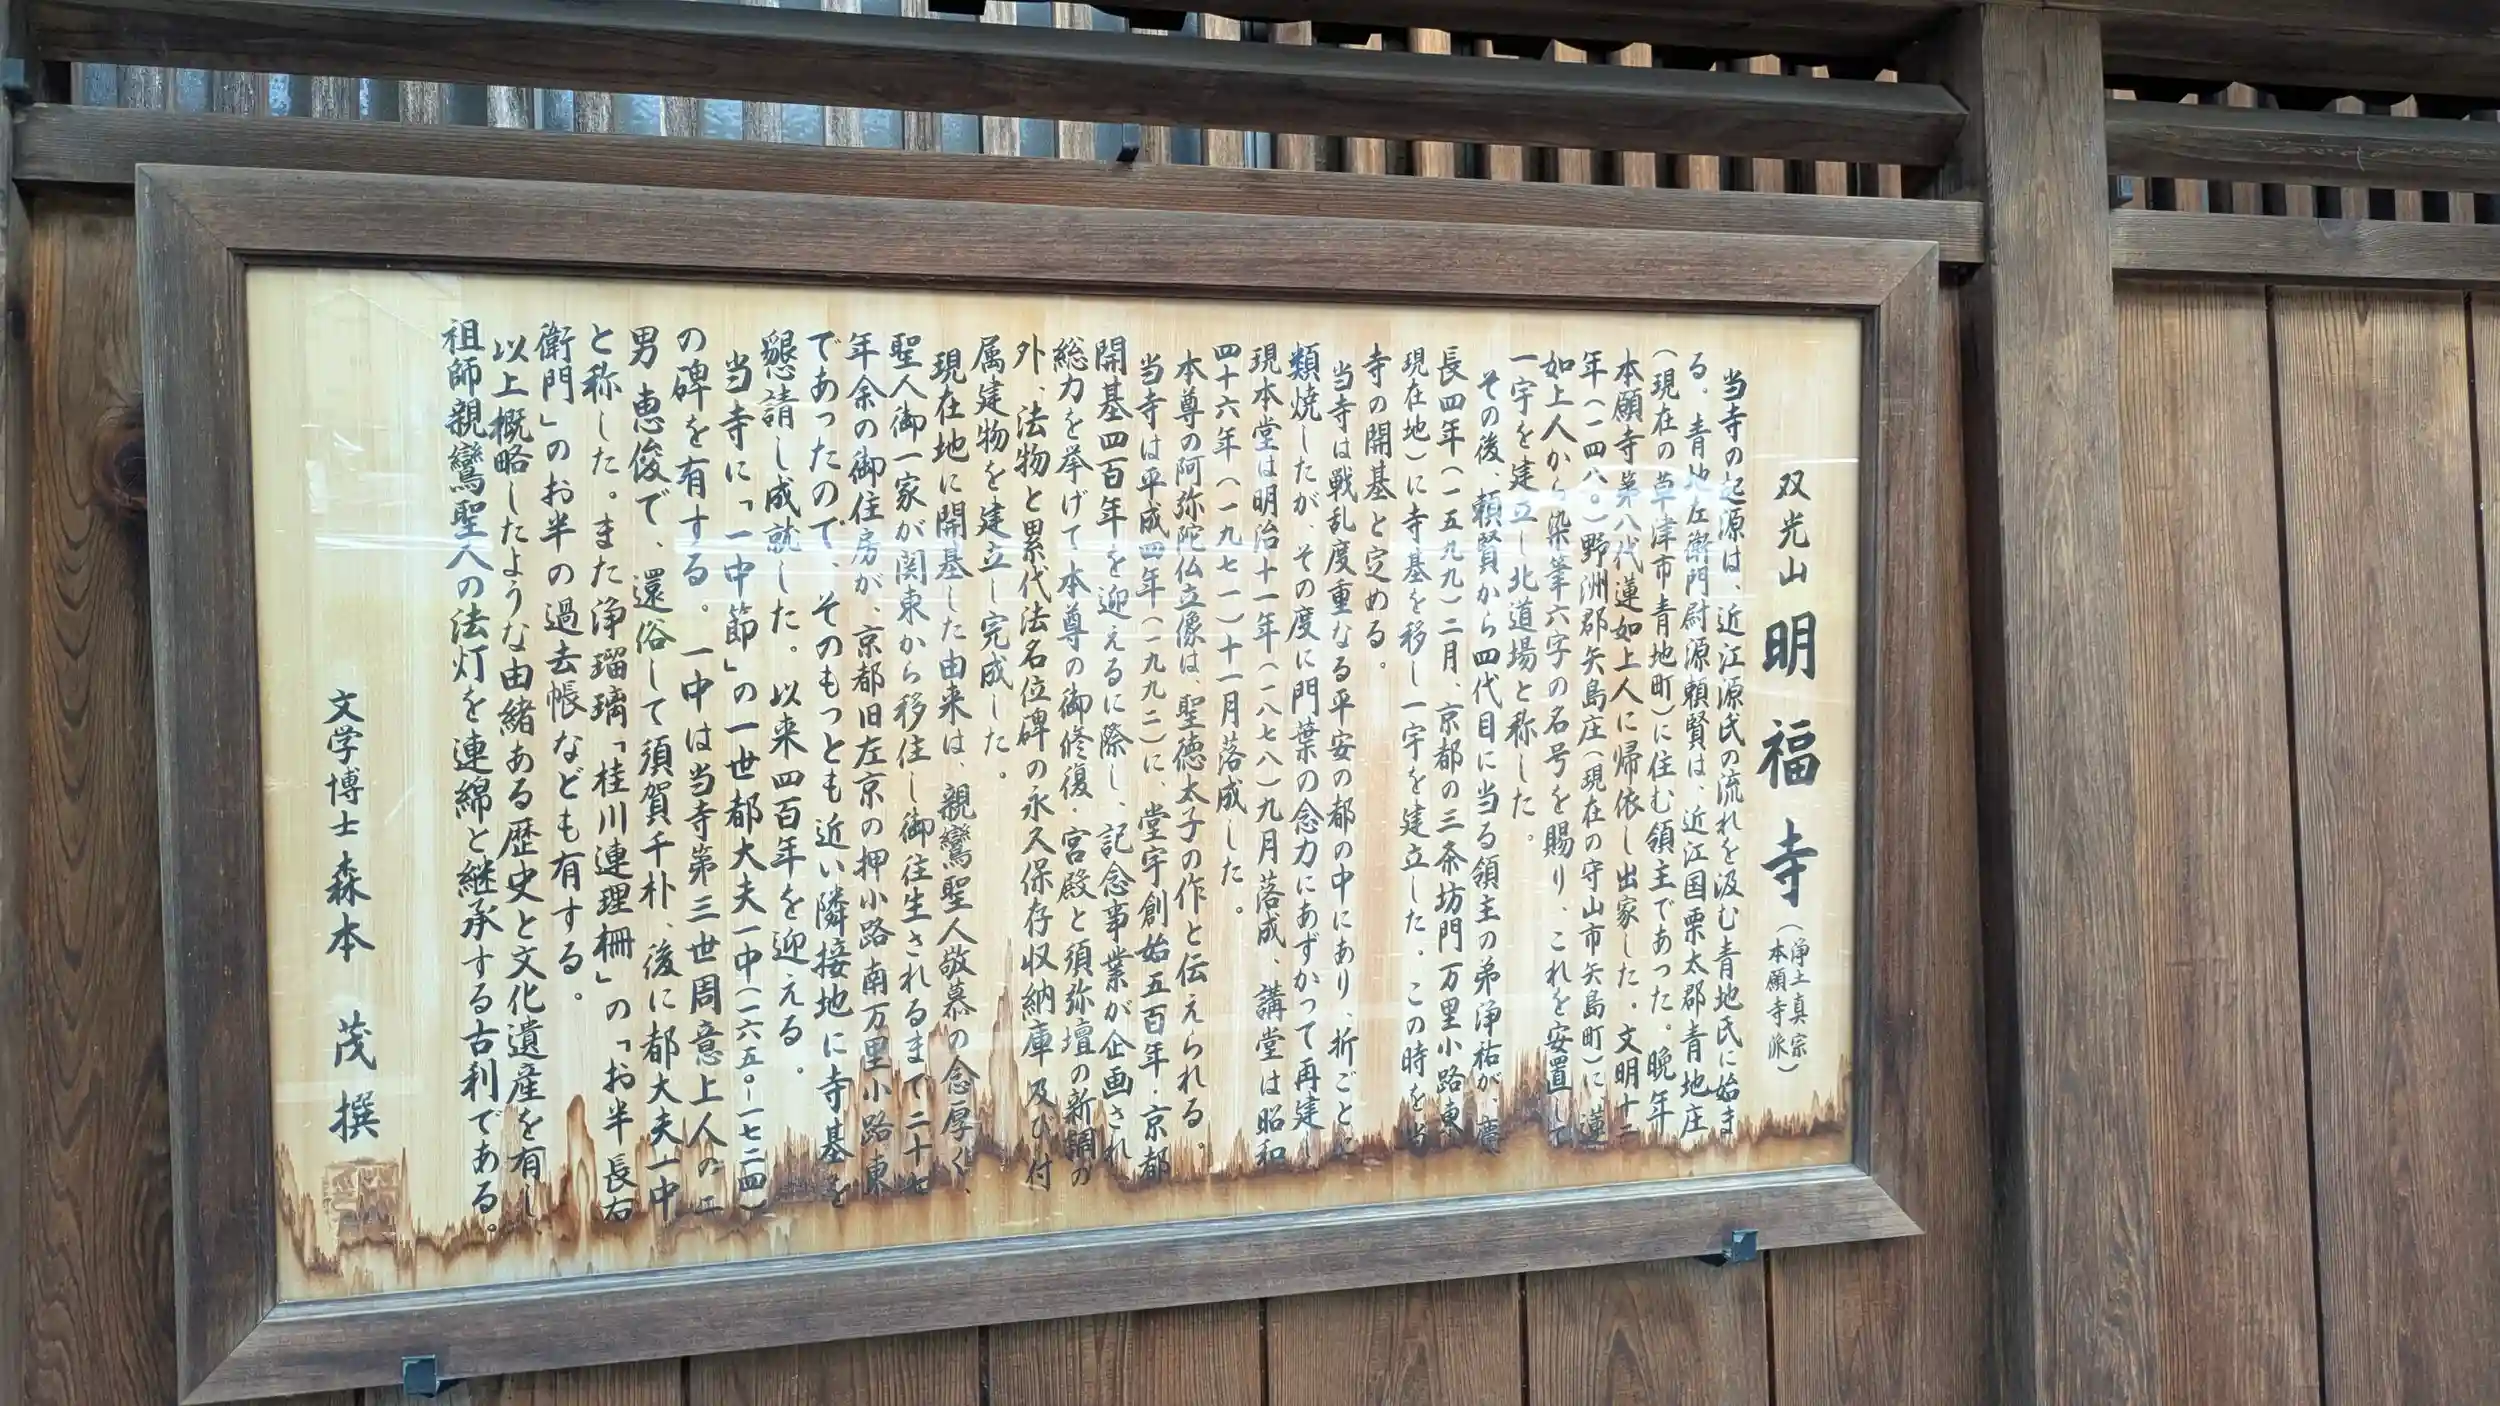 双光山 明福寺(浄土真宗
本願寺派)
当寺の起源は、近江源氏の流れを汲む青地氏に始ま
る。青地左衛門尉源頼賢は、近江国栗太郡青地庄
(現在の草津市青地町)に住む領主であった。晩年
本願寺第八代蓮如上人に帰依し出家した。文明十二
年(一四八〇)野洲郡矢島庄(現在の守山市矢島町)に、蓮
如上人から染筆六字の名号を賜り、これを安置して
一宇を建立し北道場と称した。
その後、頼賢から四代目に当る領主の弟浄祐が、慶
長四年(一五九九)二月、京都の三条坊門万里小路東
現在地)に寺基を移し一宇を建立した。この時を当
寺の開基と定める。
当寺は戦乱度重なる平安の都の中にあり、折ごとに
類焼したが、その度に門葉の念力にあずかって再建し
現本堂は明治十一年(一八七八)九月落成、講堂は昭和
四十六年(一九七一)十一月落成した。
本尊の阿弥陀仏立像は、聖徳太子の作と伝えられる。
当寺は平成四年(一九九二)に、堂宇創始五百年・京都
開基四百年を迎えるに際し、記念事業が企画され
総力を挙げて本尊の御修復・宮殿と須弥壇の新調の
外、法物と累代法名位碑の永久保存収納庫及び付
属建物を建立し完成した。
現在地に開基した由来は、親鸞聖人敬慕の念厚く、
聖人御一家が関東から移住し御往生されるまで二十七
年余の御住房が、京都旧左京の押小路南万里小路東
であったので、そのもっとも近い隣接地に寺基を
懇請し成就した。以来四百年を迎える。
当寺に「一中節」の一世都大夫一中(一六五〇-一七二四)
の碑を有する。一中は当寺第三世周意上人の二
男 恵俊で、還俗して須賀千朴、後に都大夫一中
と称した。また浄瑠璃「桂川連理柵」の「お半長右
衛門」のお半の過去帳なども有する。
以上概略したような由緒ある歴史と文化遺産を有し
祖師親鸞聖人の法灯を連綿と継承する古刹である。
文学博士 森本 茂 撰